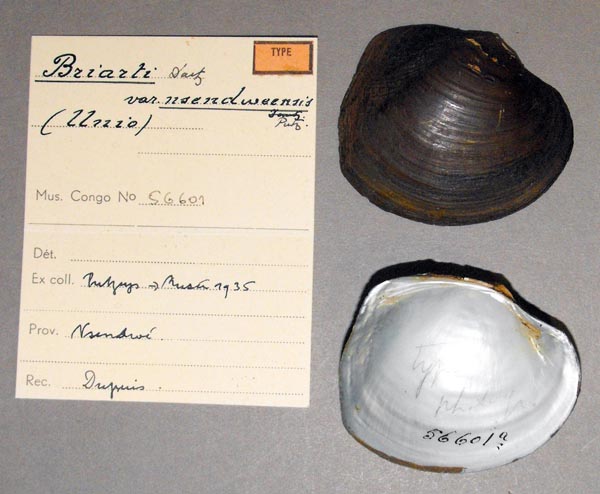 TYPE
Briarti Dautz
var. nsendweensis
(Unio) Putz.
Mus. Congo No 56601
Dét.
Ex coll. Putzeys → 1935
Prov. Nsendwé
Rec. Dupuis.
type
56601a